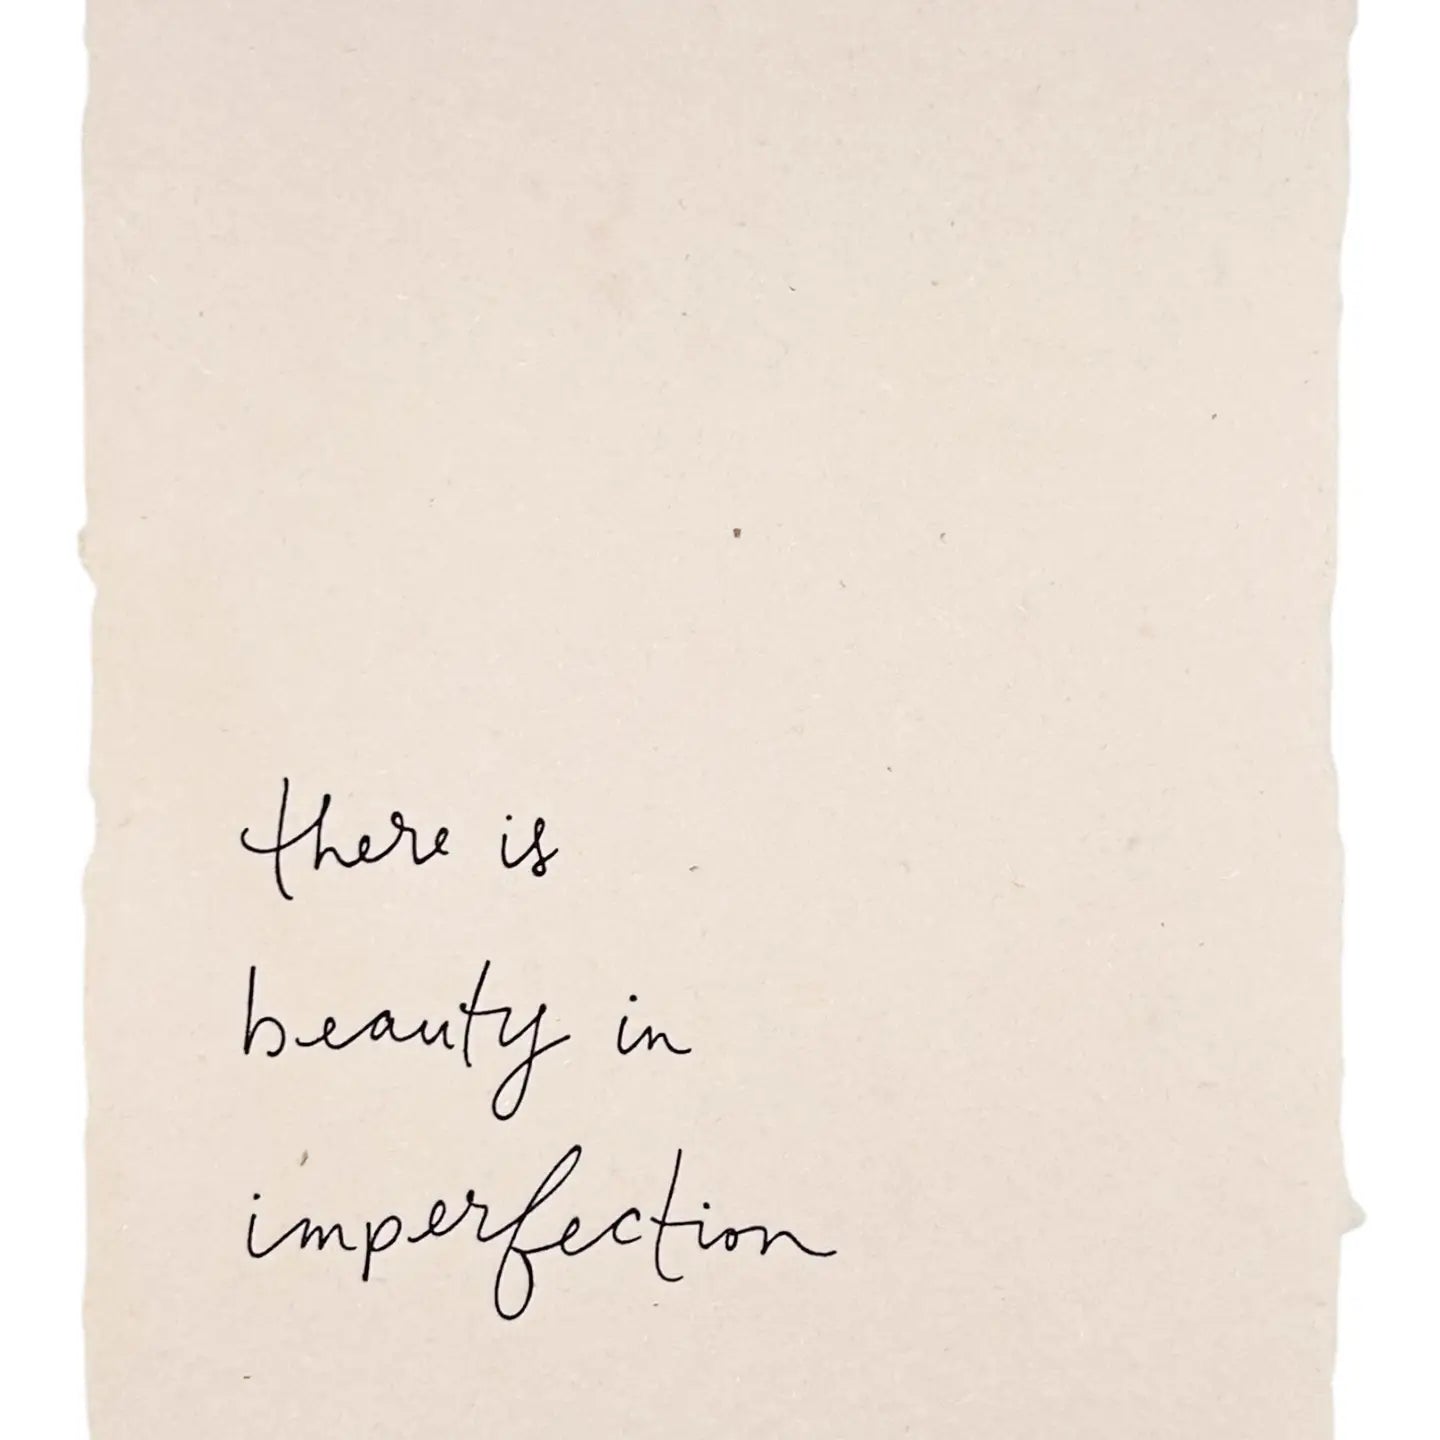 there is
beauty in
imperfection